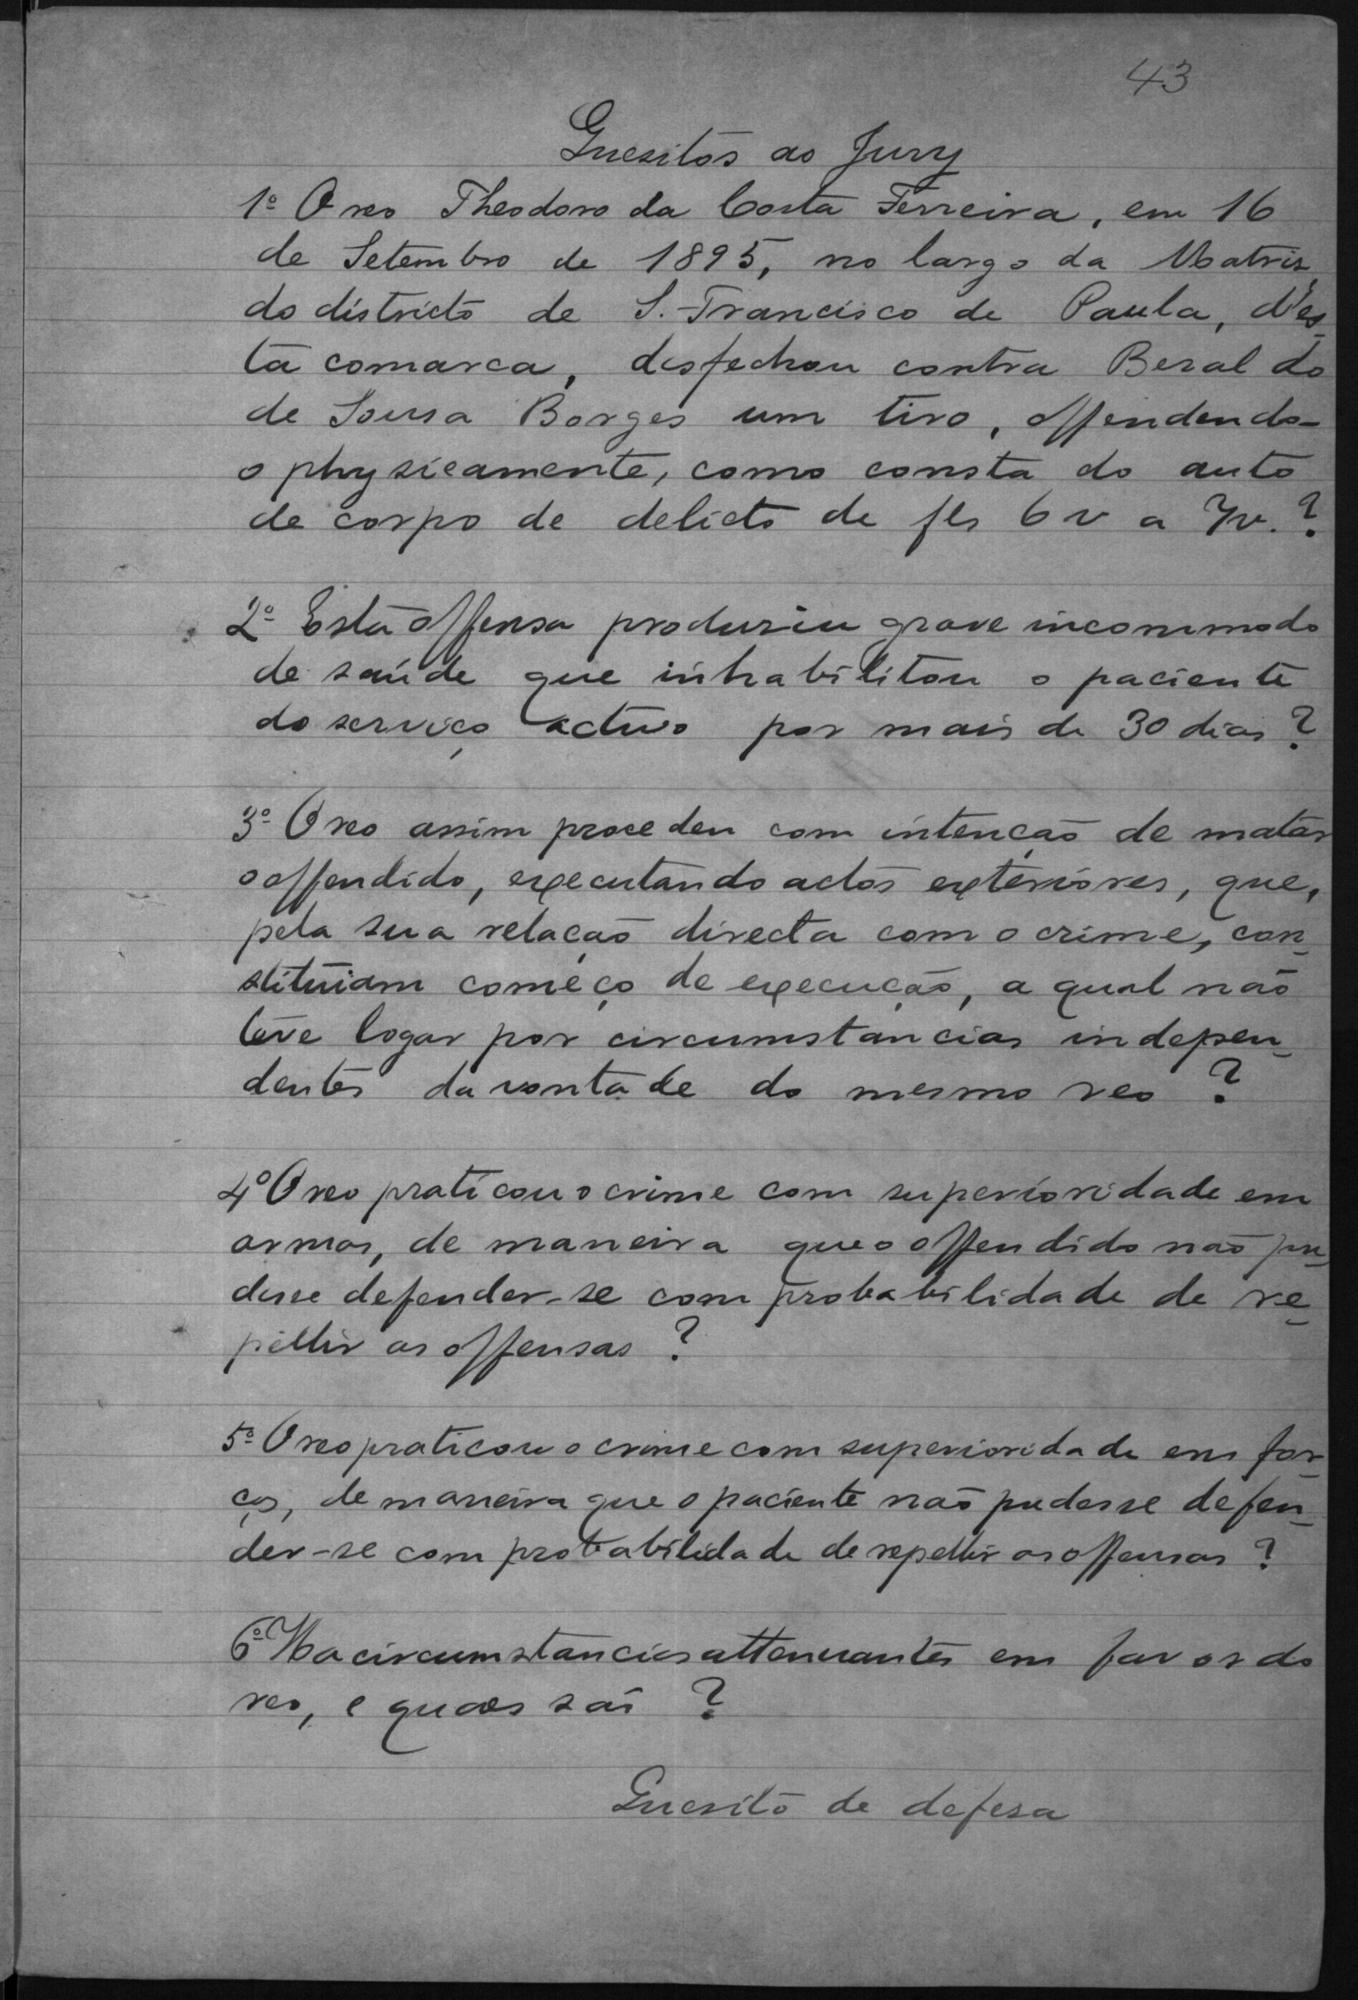 43
Quesitos ao Jury
1º O reo Theodoro da Costa Ferreira, em 16
de Setembro de 1895, no largo da Matriz
do districto de S. Francisco de Paula, d'es-
ta comarca, desfechou contra Beraldo
de Sousa Borges um tiro, offendendo-
o physicamente, como consta do auto
de corpo de delicto de fls 6v a 7v.?
2º Esta offensa produziu grave incommodo
de saúde que inhabilitou o paciente
do serviço activo por mais de 30 dias?
3º O reo assim procedeu com intenção de matar
o offendido, executando actos exteriores, que,
pela sua relação directa com o crime, con-
stituiam começo de execução, a qual não
teve logar por circumstancias indepen-
dentes da vontade do mesmo reo?
4º O reo praticou o crime com superioridade em
armas, de maneira que o offendido não pu-
desse defender-se com probabilidade de re-
pellir as offensas?
5º O reo praticou o crime com superioridade em for-
ças, de maneira que o paciente não pudesse defen-
der-se com probabilidade de repellir as offensas?
6º Ha circumstancias attenuantes em favor do
reo, e quaes são?
Quesito de defesa